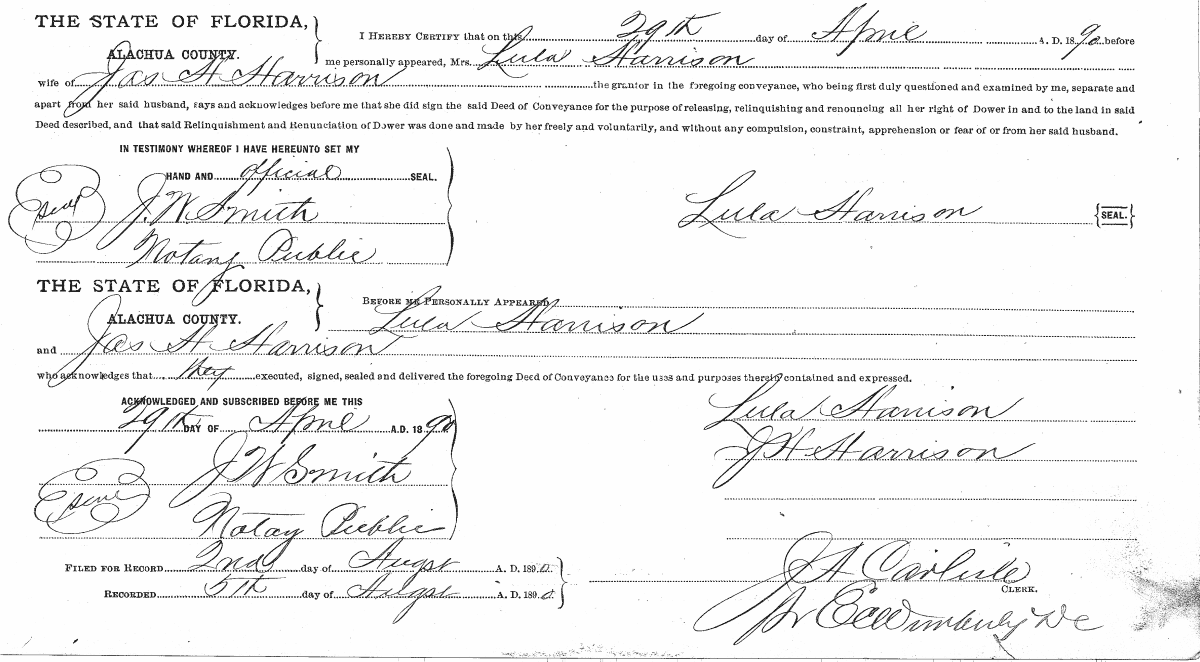 THE STATE OF FLORIDA,
ALACHUA COUNTY.
I HEREBY CERTIFY that on this 29th day of April A. D. 1890 before
me personally appeared, Mrs. Lula Harrison
wife of Jas H Harrison the grantor in the foregoing conveyance, who being first duly questioned and examined by me, separate and
apart from her said husband, says and acknowledges before me that she did sign the said Deed of Conveyance for the purpose of releasing, relinquishing and renouncing all her right of Dower in and to the land in said
Deed described, and that said Relinquishment and Renunciation of Dower was done and made by her freely and voluntarily, and without any compulsion, constraint, apprehension or fear of or from her said husband.
IN TESTIMONY WHEREOF I HAVE HEREUNTO SET MY
HAND AND official SEAL.
Seal J. W. Smith
Lula Harrison {SEAL.}
Notary Public
THE STATE OF FLORIDA,
ALACHUA COUNTY.
BEFORE ME PERSONALLY APPEARED
Lula Harrison
and Jas H Harrison
who acknowledges that they executed, signed, sealed and delivered the foregoing Deed of Conveyance for the uses and purposes therein contained and expressed.
ACKNOWLEDGED AND SUBSCRIBED BEFORE ME THIS
29th DAY OF April A.D. 1890
Lula Harrison
J H Harrison
Seal J W Smith
Notay Public
FILED FOR RECORD 2nd day of Augst A. D. 1890.
RECORDED 5th day of Augst A. D. 1890.
J A Carlisle
CLERK.
pr E C Wimberly DC